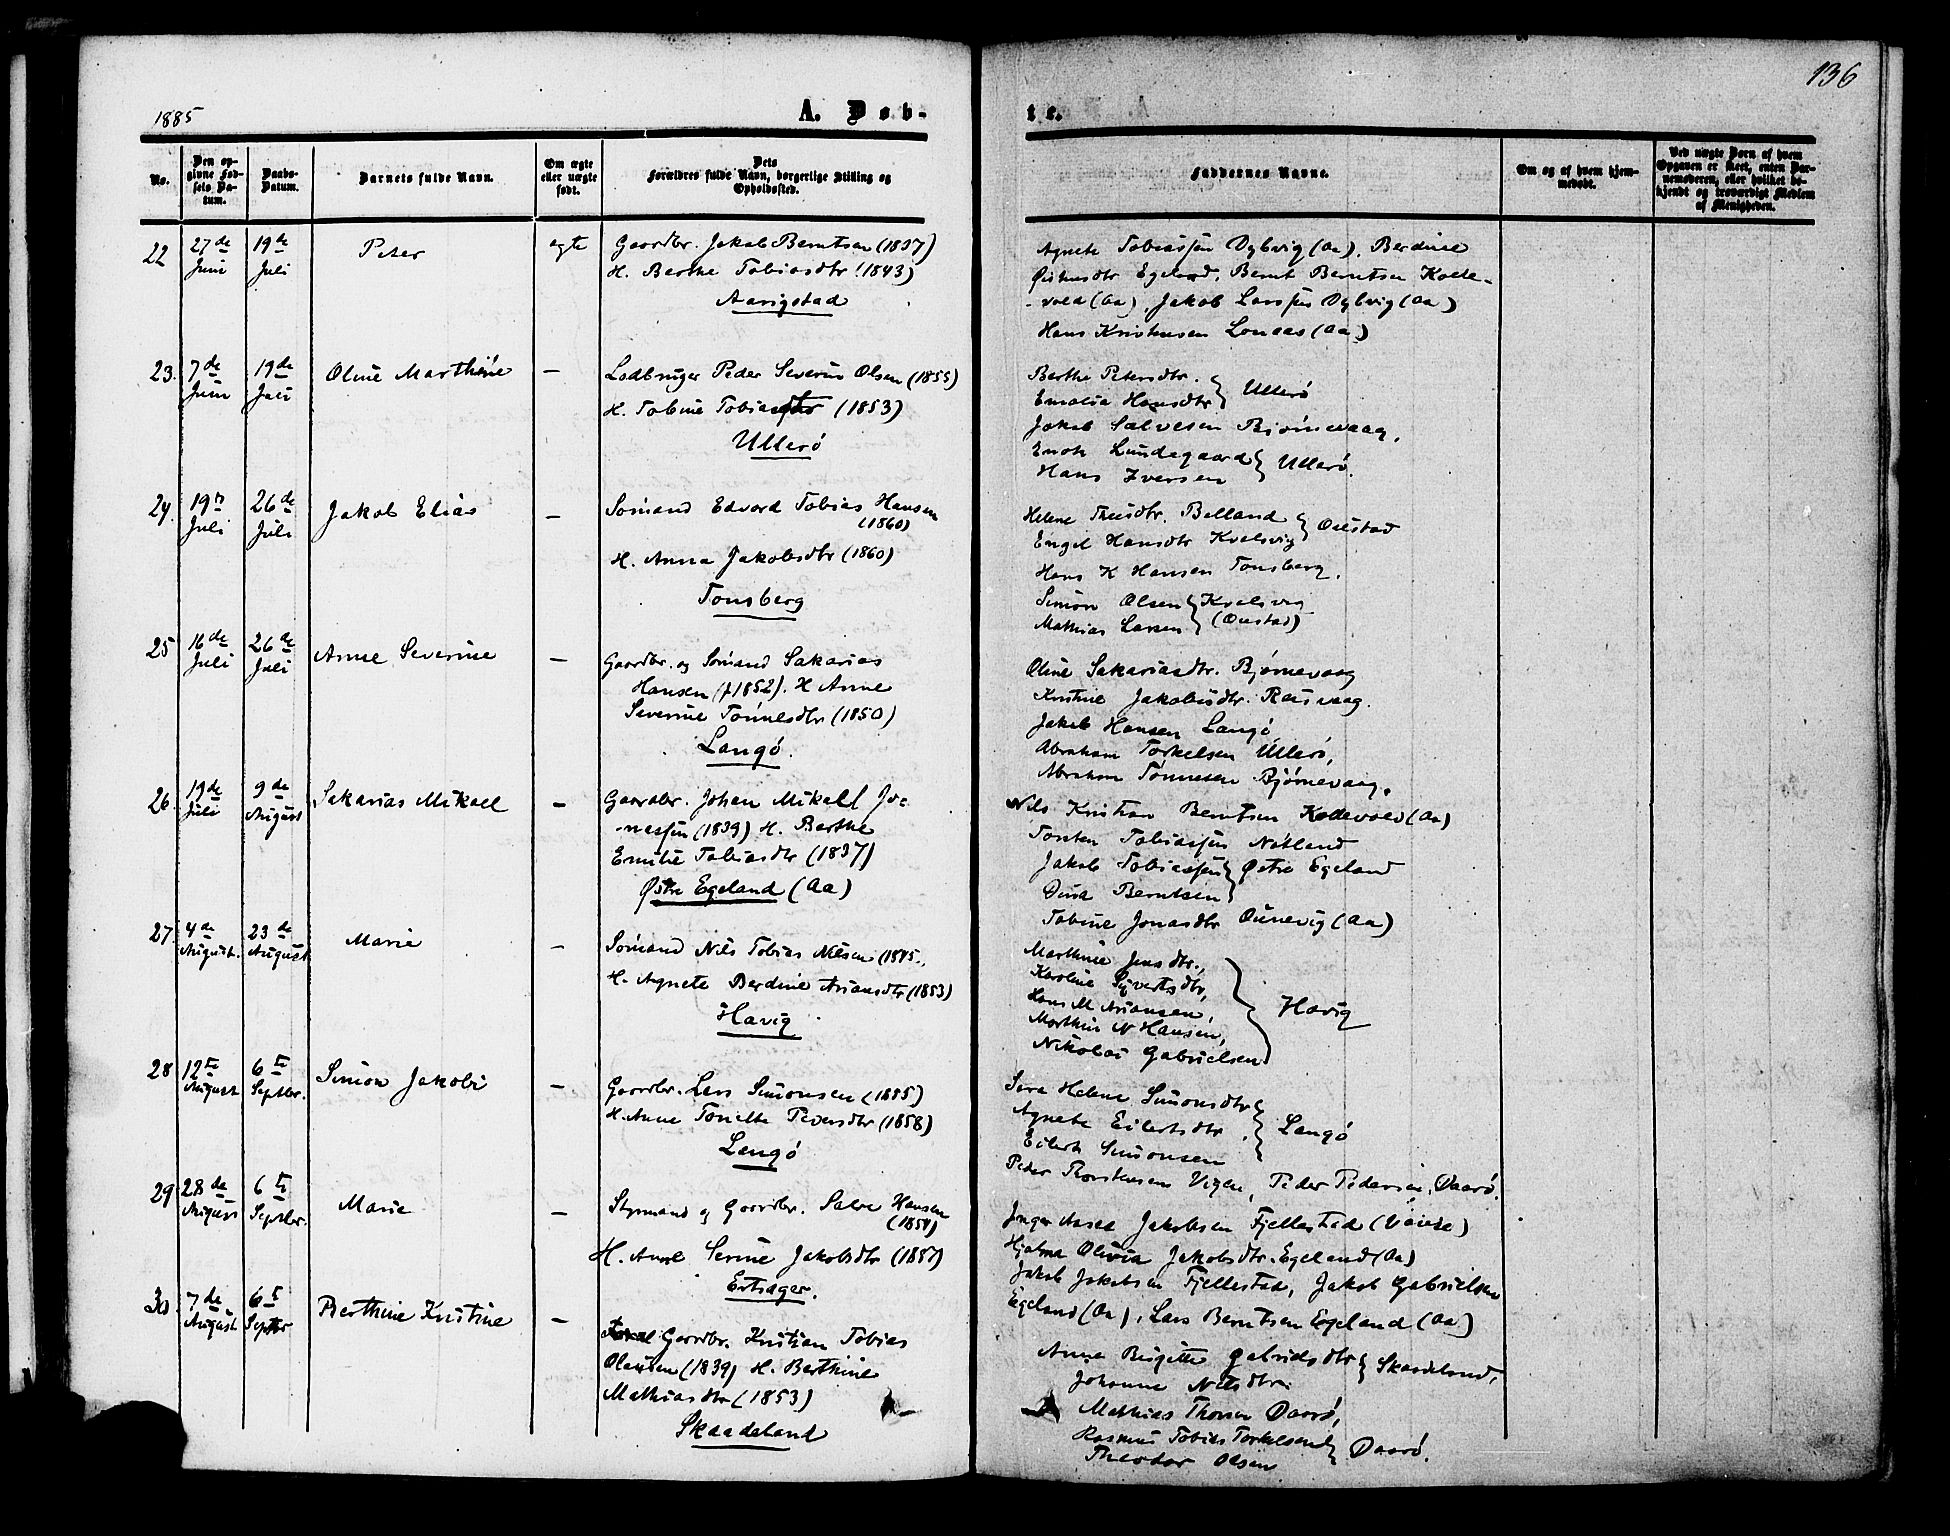 136
1885
A. Døb-
te.
No.
Den op-
givne Fød-
sels Da-
tum.
Daabs-
Datum.
Barnets fulde Navn.
Om ægte
eller uægte
født.
Dets
Forældres fulde Navn, borgerlige Stilling og
Opholdssted.
Faddernes Navne.
Om og af hvem hjem-
medøbt.
Ved uægte Børn af hvem
Opgaven er skeet, enten Bar-
nemoderen, eller hvilket be-
kjendt og troværdigt Medlem
af Menigheden.
22
27de
Juni
19de
Juli
Peter
ægte
Gaardbr. Jakob Berntsen (1837)
H. Berthe Tobiasdtr (1843)
Aarigstad
Agnete Tobiassen Dybvig (Aa), Berdine
Egeland, Bernt Berntsen Kolle-
-vold (Aa), Jakob Larssen Dybvig (Aa)
Hans Kristensen Lonaas (Aa)
23.
7de
Juni
19de
Juli
Oline Marthine
—
Lodbruger Peder Severin Olsen (1855)
H. Tobine Tobiasdtr (1853)
Ullerø
Berthe Petersdtr.
Emalia Hansdtr } Ullerø
Jakob Salvesen Bjørnevaag,
Enok Lundegaard
Hans Iversen } Ullerø.
24.
19de
Juli
26de
Juli
Jakob Elias
—
Sømand Edvard Tobias Hansen
(1860)
H. Anna Jakobsdtr (1860)
Tonsberg
Helene Theisdtr. Belland
Engel Hansdtr Kvelsvig } Ouestad
Hans K Hansen Tonsberg.
Simon Olsen } Kvelsvig
Mathias Larsen (Ouestad)
25
16de
Juli
26de
Juli
Anne Severine
—
Gaardbr. og Sømand Sakarias
Hansen (1852). H Anne
Severine Tønnesdtr (1850)
Langø.
Oline Sakariasdtr. Bjørnevaag
Kristine Jakobsdtr. Rausvaag.
Jakob Hansen Langø
Abraham Torkelsen Ullerø,
Abraham Tønnesen Bjørnevaag.
26.
19de
Juli
9de
August
Sakarias Mikael
—
Gaardbr. Johan Mikael Jo-
-nassen (1839) H. Berthe
Emilie Tobiasdtr (1837)
Østre Egeland (Aa)
Nils Kristian Berntsen Kollevold (Aa)
Torsten Tobiassen Nøtland
Jakob Tobiassen } Østre Egeland
Dina Berntsen
Tobine Jonasdtr Ounevig (Aa)
27.
4de
August.
23de
August
Marie
—
Sømand Nils Tobias Nilsen (1845.,
H. Agnete Berdine Ariansdtr (1853)
Havig
Marthine Jensdtr.,
Karoline Syvertsdtr,
Hans M Ariansen,
Marthin N Hansen,
Nikolai Gabrielsen } Havig
28
12te
August
6te
Septbr.
Simon Jakobi
—
Gaardbr. Lars Simonsen (1855)
H. Anne Tonette Pedersdtr (1858)
Langø
Sara Helene Simonsdtr
Agnete Eilertsdtr
Eilert Simonsen } Langø
Peder Thorstensen Vigen, Peder Pedersen, Daarø.
29
28de
August
6te
Septbr.
Marie
—
Styrmand og Gaardbr. Salve Hansen
(1854)
H. Anne Serine Jakobsdtr (1857)
Ertsager.
Inger Aasea Jakobsen Fjellestad (Vaiese)
Hjalma Olivia Jakobsdtr. Egeland (Aa)
Jakob Jakobsen Fjellestad, Jakob Gabrielsen
Egeland (Aa), Lars Berntsen Egeland (Aa)
30.
7de
August
6te
Septbr
Berthine Kristine
—
Gaardbr. Kristian Tobias
Olausen (1839) H. Berthine
Mathiasdtr (1853)
Skaadeland
Anna Birgitte Gabrielsdtr } Skaadeland,
Johanne Nilsdtr.
Mathias Thorsen Daarø,
Rasmus Tobias Torkelsen } Daarø.
Theodor Olsen